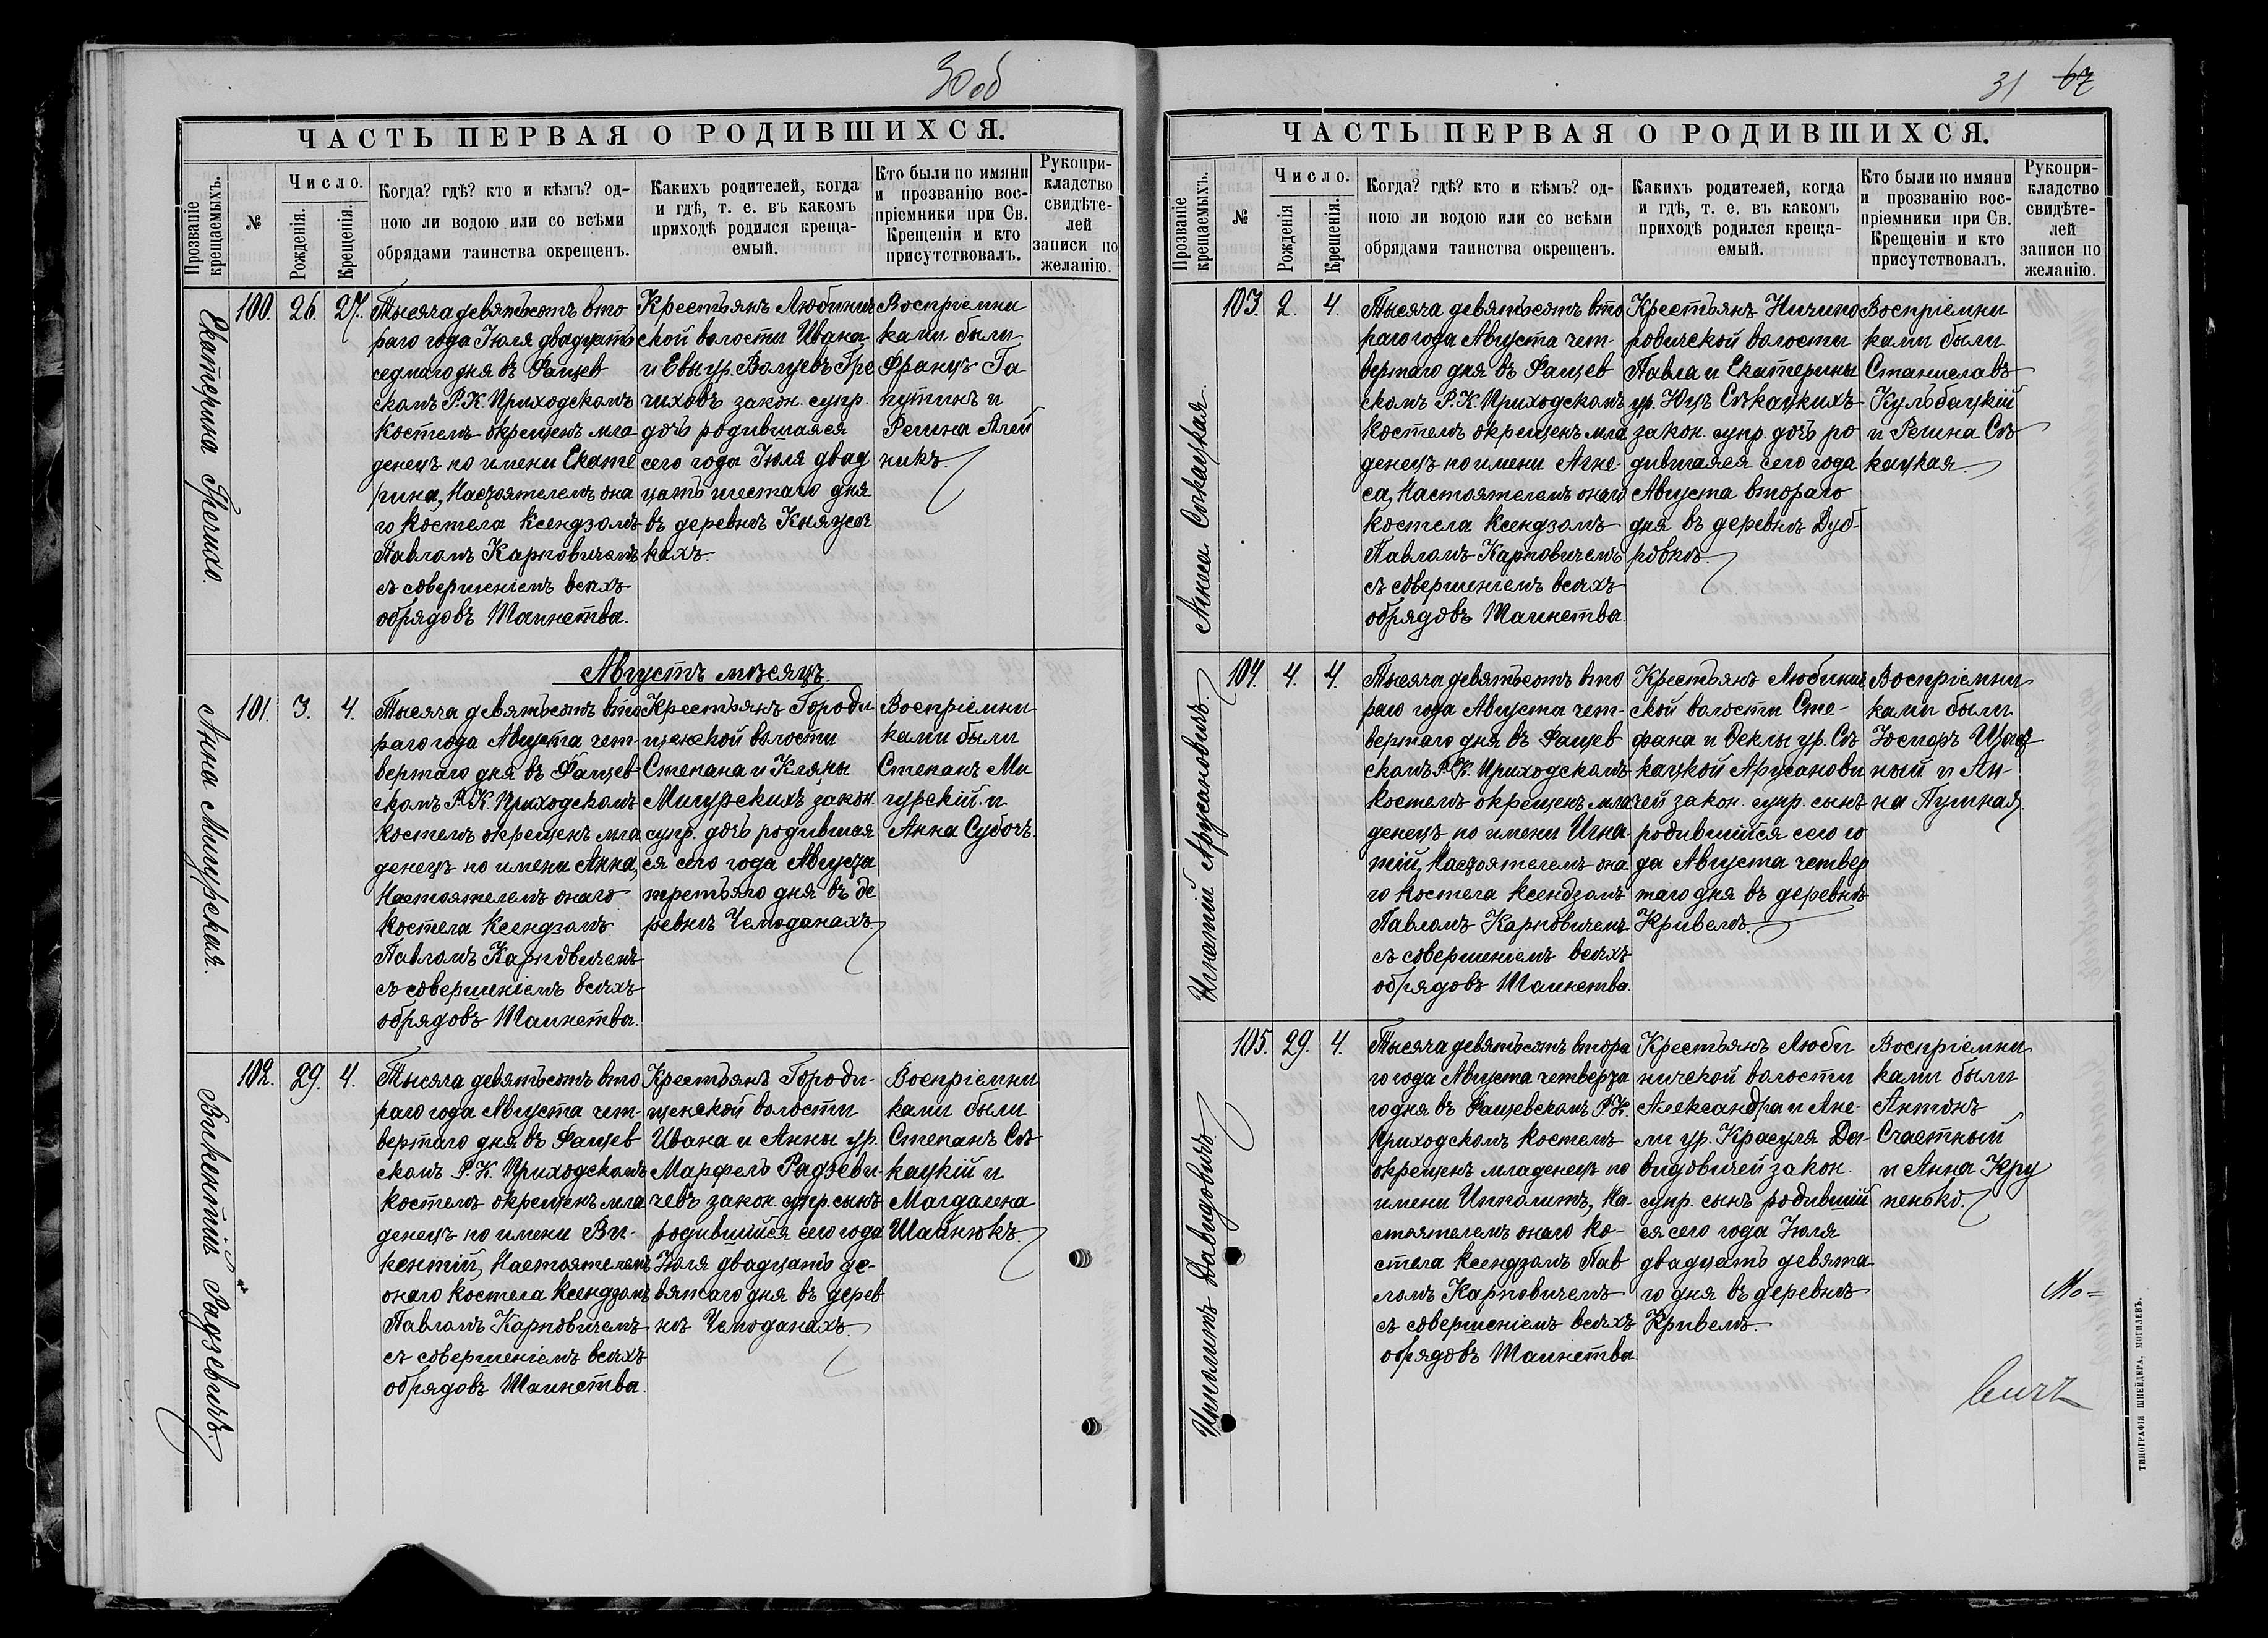 30 об
ЧАСТЬ ПЕРВАЯ О РОДИВШИХСЯ.
Прозваніе крещаемыхъ.
№
Число.
Рожденія.
Крещенія.
Когда? гдѣ? кто и кѣмъ? од-
ною ли водою или со всѣми
обрядами таинства окрещенъ.
Какихъ родителей, когда
и гдѣ, т. е. въ какомъ
приходѣ родился креща-
емый.
Кто были по имяни
и прозванію вос-
пріемники при Св.
Крещеніи и кто
присутствовалъ.
Рукопри-
кладство
свидѣте-
лей
записи по
желанію.
Екатерина
100.
26.
27.
Тысяча девятьсотъ вто
раго года Іюля двадцать
седмаго дня въ Фащев
скомъ Р. К. Приходскомъ
костелѣ окрещенъ мла
денецъ по имени Екате
рина, Настоятелемъ она
го костела Ксендзомъ
Павломъ Карповичемъ
съ совершеніемъ всѣхъ
обрядовъ Таинства.
Крестьянъ Любинич
ской волости Ивана
и Евы ур. Валуевъ Гре
чиховъ закон. супр.
дочь родившаяся
сего года Іюля двад
цать шестаго дня
въ деревнѣ Княжи
кахъ.
Воспріемни
ками были
Францъ Га
путинъ и
Регина Алей
никъ.
Августъ мѣсяцъ.
Анна Мигурская.
101.
3.
4.
Тысяча девятьсотъ вто
раго года Августа чет-
вертаго дня въ Фащев
скомъ Р. К. Приходскомъ
костелѣ окрещенъ мла
денецъ по имени Анна,
Настоятелемъ онаго
костела Ксендзомъ
Павломъ Карповичемъ
съ совершеніемъ всѣхъ
обрядовъ Таинства.
Крестьянъ Городи
щенской волости
Степана и Кляры
Мигурскихъ закон.
супр. дочь родившая
ся сего года Августа
третьяго дня въ де
ревнѣ Чемоданахъ.
Воспріемни
ками были
Степанъ Ми
гурскій и
Анна Субочъ.
Викентій Радзевичъ.
102.
29.
4.
Тысяча девятьсотъ вто
раго года Августа чет-
вертаго дня въ Фащев
скомъ Р. К. Приходскомъ
костелѣ окрещенъ мла
денецъ по имени Ви-
кентій, Настоятелемъ
онаго костела Ксендзомъ
Павломъ Карповичемъ
съ совершеніемъ всѣхъ
обрядовъ Таинства.
Крестьянъ Городи-
щенской волости
Ивана и Анны ур.
Марфель Радзеви
чевъ закон. супр. сынъ
родившійся сего года
Іюля двадцать де-
вятаго дня въ дерев
нѣ Чемоданахъ.
Воспріемни
ками были
Степанъ Сѣ
кацкій и
Магдалена
Шайнюкъ.
31 67
ЧАСТЬ ПЕРВАЯ О РОДИВШИХСЯ.
Прозваніе крещаемыхъ.
№
Число.
Рожденія
Крещенія.
Когда? гдѣ? кто и кѣмъ? од-
ною ли водою или со всѣми
обрядами таинства окрещенъ.
Какихъ родителей, когда
и гдѣ, т. е. въ какомъ
приходѣ родился креща-
емый.
Кто были по имяни
и прозванію вос-
пріемники при Св.
Крещеніи и кто
присутствовалъ.
Рукопри-
кладство
свидѣте-
лей
записи по
желанію.
Агнеса Сѣкацкая.
103.
2.
4.
Тысяча девятьсотъ вто
раго года Августа чет-
вертаго дня въ Фащев
скомъ Р. К. Приходскомъ
костелѣ окрещенъ мла
денецъ по имени Агне-
са, Настоятелемъ онаго
костела Ксендзомъ
Павломъ Карповичемъ
съ совершеніемъ всѣхъ
обрядовъ Таинства.
Крестьянъ Ничипо
ровичской волости
Павла и Екатерины
ур. Юцъ Сѣкацкихъ
закон. супр. дочь ро
дившаяся сего года
Августа втораго
дня въ деревнѣ Дуб-
ровкѣ.
Воспріемни
ками были
Станиславъ
Кульбацкій
и Регина Сѣ
кацкая.
Игнатій Арцсановичъ.
104.
4.
4.
Тысяча девятьсотъ вто
раго года Августа чет-
вертаго дня въ Фащев
скомъ Р. К. Приходскомъ
костелѣ окрещенъ мла
денецъ по имени Игна-
тій, Настоятелемъ она
го костела Ксендзомъ
Павломъ Карповичемъ
съ совершеніемъ всѣхъ
обрядовъ Таинства.
Крестьянъ Любинич
ской волости Сте-
фана и Ѳеклы ур. Сѣ
кацкой Арцсанови
чей закон. супр. сынъ
родившійся сего го
да Августа четвер
таго дня въ деревнѣ
Кривелѣ.
Воспріемни
ками были
ный и Ан-
на Пушная.
Ипполитъ Давидовичъ
105.
29.
4.
Тысяча девятьсотъ втора
го года Августа четверта
го дня въ Фащевскомъ Р. К.
Приходскомъ костелѣ
окрещенъ младенецъ по
имени Ипполитъ, На-
стоятелемъ онаго ко-
стела Ксендзомъ Пав
ломъ Карповичемъ
съ совершеніемъ всѣхъ
обрядовъ Таинства
Крестьянъ Люби
ничской волости
Александра и Ане-
ли ур. Красуля Да-
видовичей закон.
супр. сынъ родившій
ся сего года Іюля
двадцать девята
го дня въ деревнѣ
Кривелѣ.
Воспріемни
ками были
Антонъ
Счастный
и Анна Кру
пенько.
Мо=
вичъ
ТИПОГРАФІЯ ШНЕЙДЕРА, МОГИЛЕВЪ.